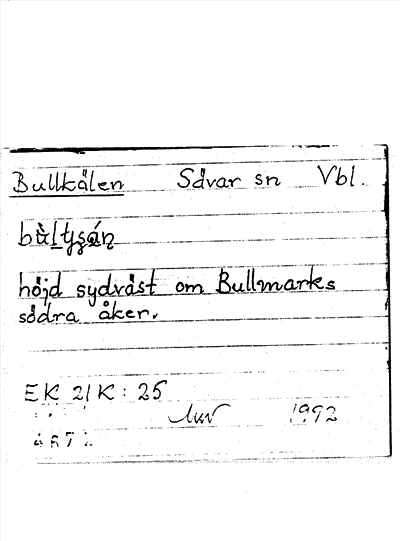 Bullkälen Sävar sn Vbl.
höjd sydväst om Bullmarks
södra åker.
EK 21K: 25
1992